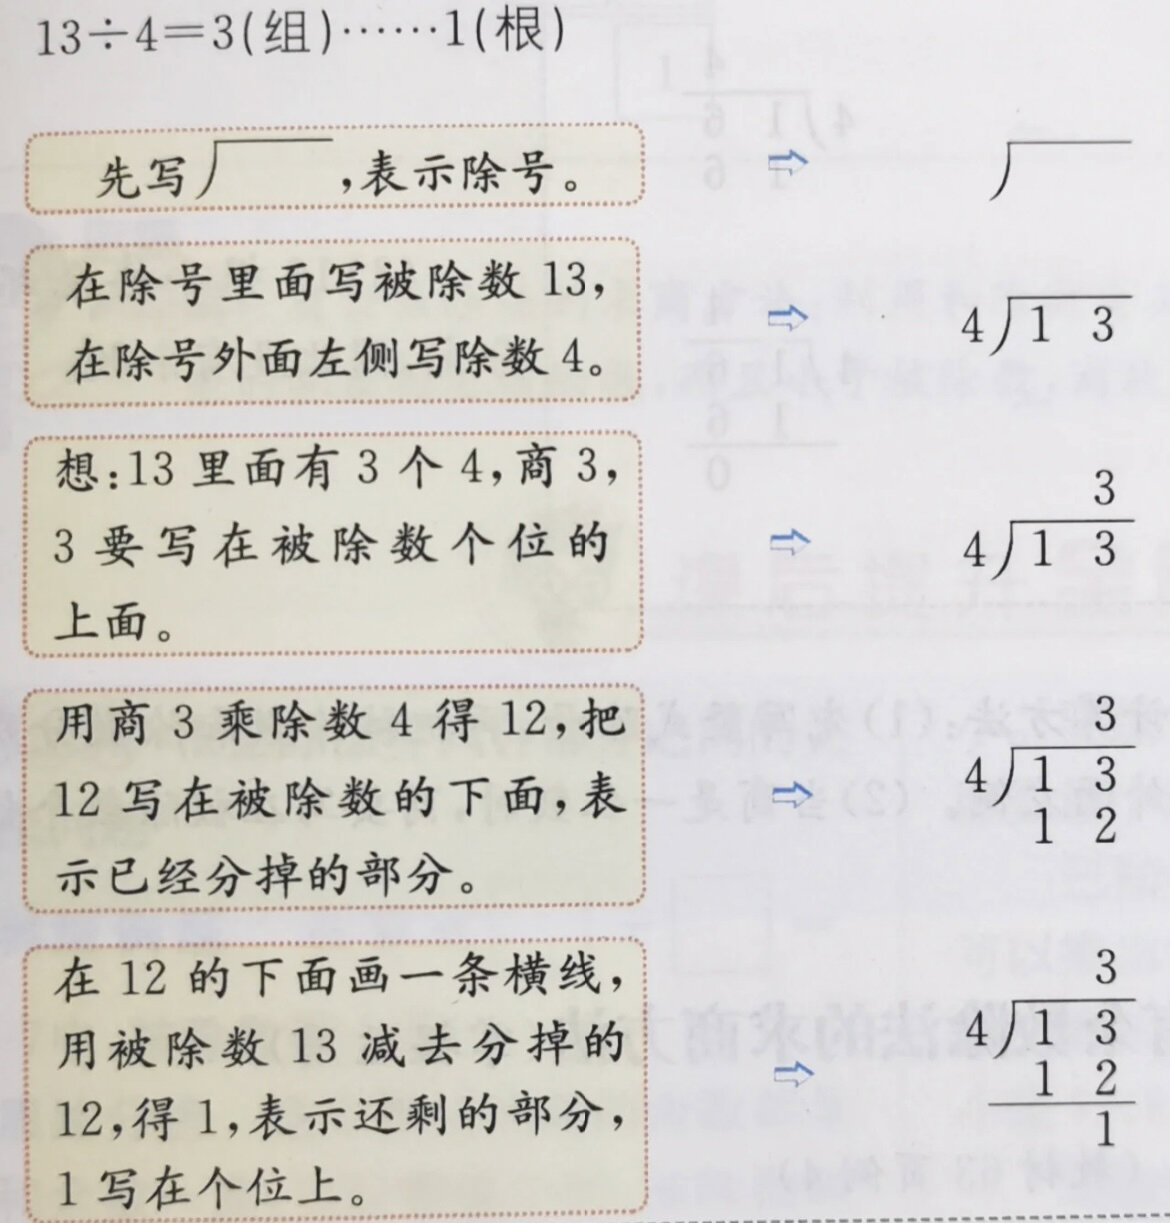 13÷4=3(组)……1(根)
先写 ,表示除号。
在除号里面写被除数 13,
在除号外面左侧写除数 4。
4 1 3
想:13 里面有 3 个 4,商 3,
3 要写在被除数个位的
上面。
3
4 1 3
用商 3 乘除数 4 得 12,把
12 写在被除数的下面,表
示已经分掉的部分。
3
4 1 3
1 2
在 12 的下面画一条横线,
用被除数 13 减去分掉的
12,得 1,表示还剩的部分,
1 写在个位上。
3
4 1 3
1 2
1